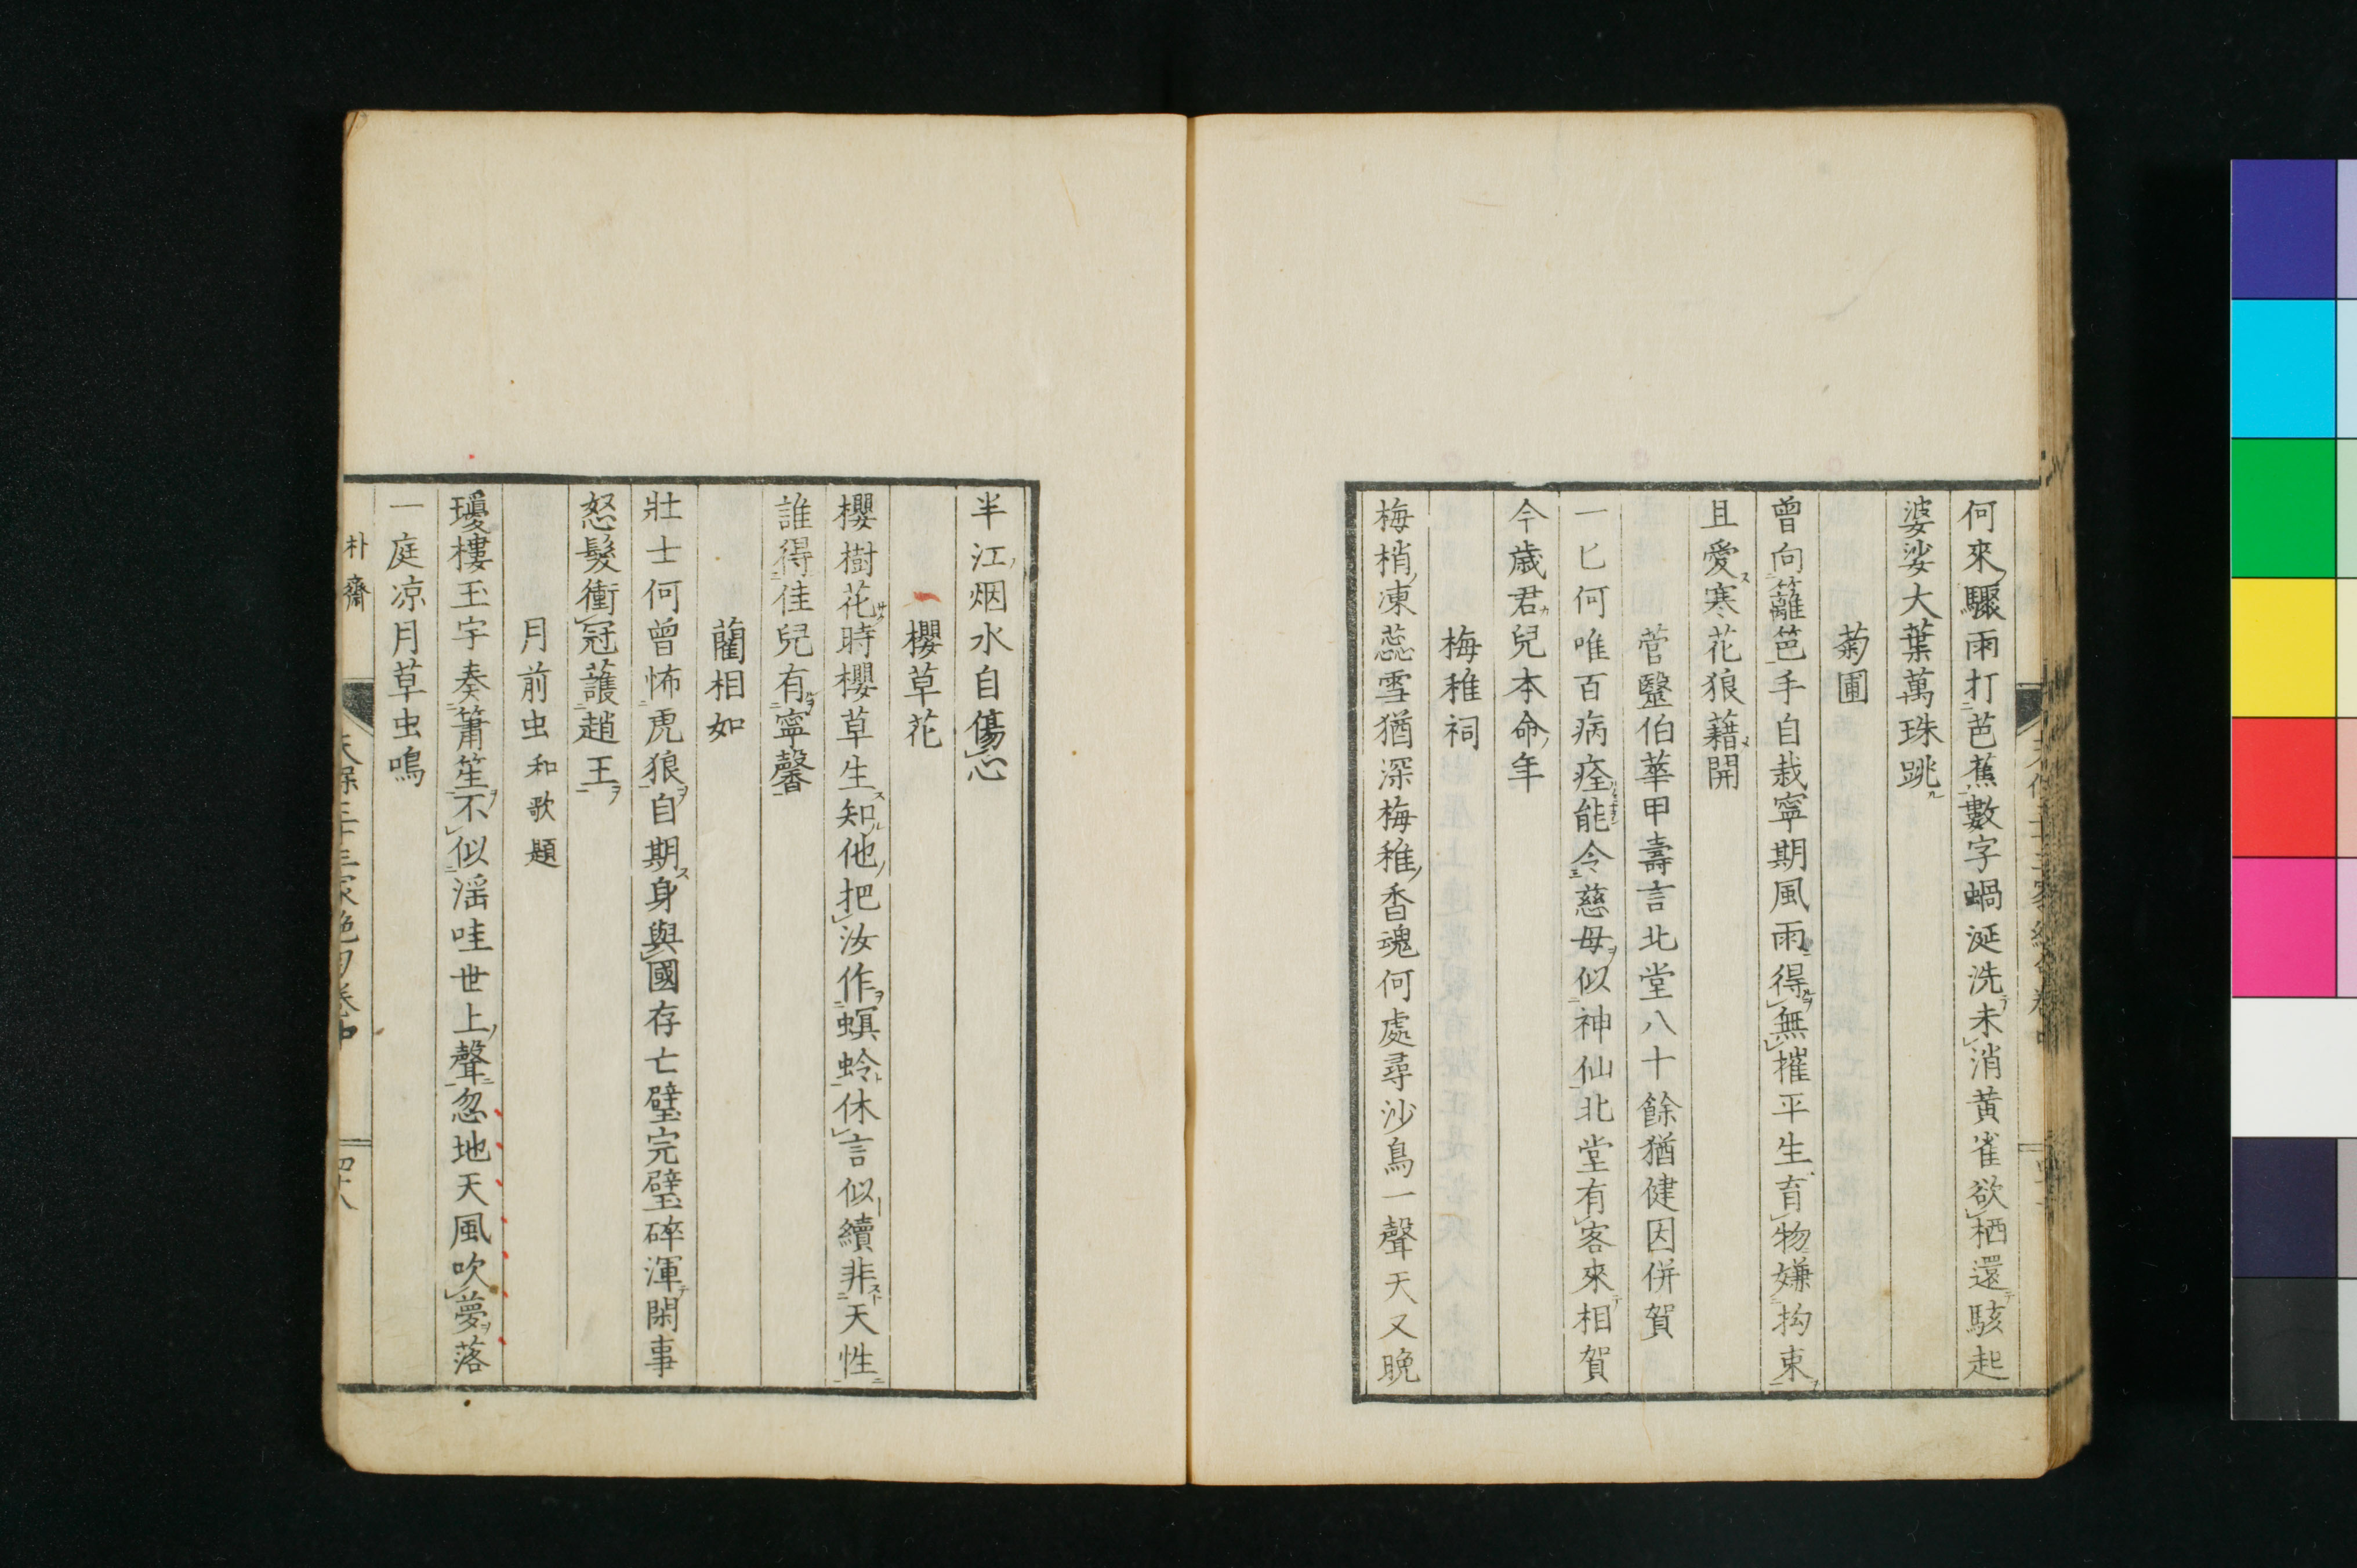 何來驟雨打芭蕉數字蝸涎洗未消黄雀欲栖還駭起
婆娑大葉萬珠跳
菊圃
曾向籬笆手自栽寧期風雨得無摧平生育物嫌拘束
且愛寒花狼藉開
菅毉伯華甲壽言北堂八十餘猶健因併賀
一匕何唯百病痊能令慈母似神仙北堂有客來相賀
今歳君兒本命年
梅稚祠
梅梢凍蕊雪猶深梅稚香魂何處尋沙鳥一聲天又晚
半江烟水自傷心
櫻草花
櫻樹花時櫻草生知他把汝作螟蛉休言似續非天性
誰得佳兒有寧馨
藺相如
壯士何曾怖虎狼自期身與國存亡璧完璧碎渾閑事
怒髮衝冠護趙王
月前虫和歌題
瓊樓玉宇奏簫笙不似淫哇世上聲忽地天風吹夢落
一庭凉月草虫鳴
朴齋
天保三十三家絶句卷中
四十八